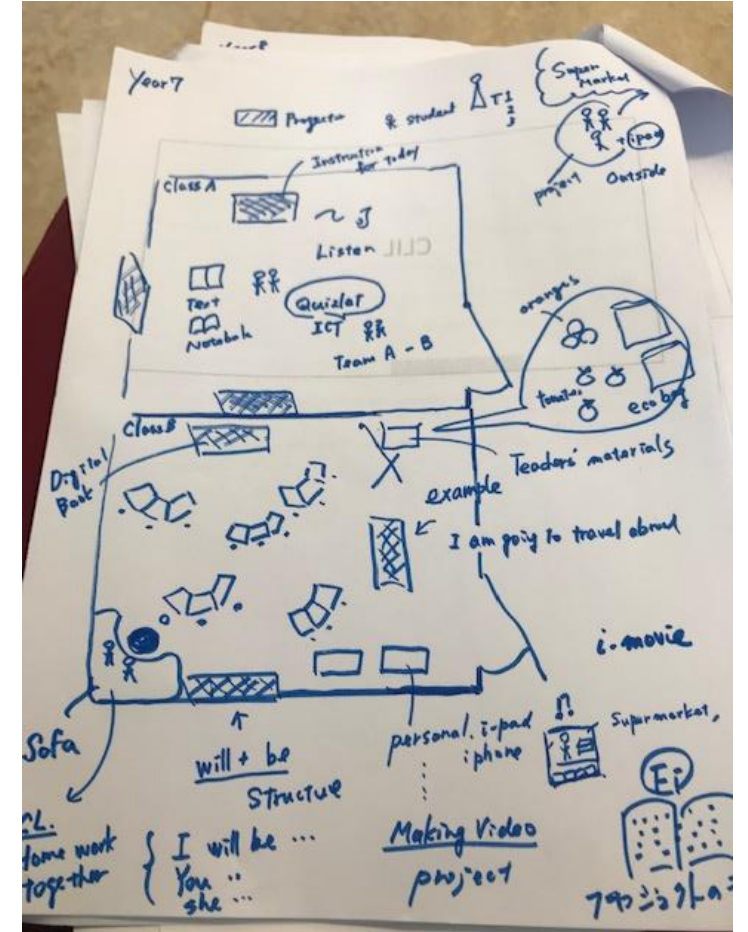 Year 7
Projector
student
T 1
2
3
Super
Market
+ ipad
project
Outside
Instruction
for today
Class A
Listen
CLIL
Text
Notebook
Quizlet
ICT
Team A - B
oranges
tomatoes
eco bag
Class B
Digital
Book
Teachers' materials
example
I am going to travel abroad
i-movie
Sofa
will + be
Structure
personal. i-pad
iphone
Supermarket,
Home work
together
I will be ...
You "
She ...
Making Video
project
Ei